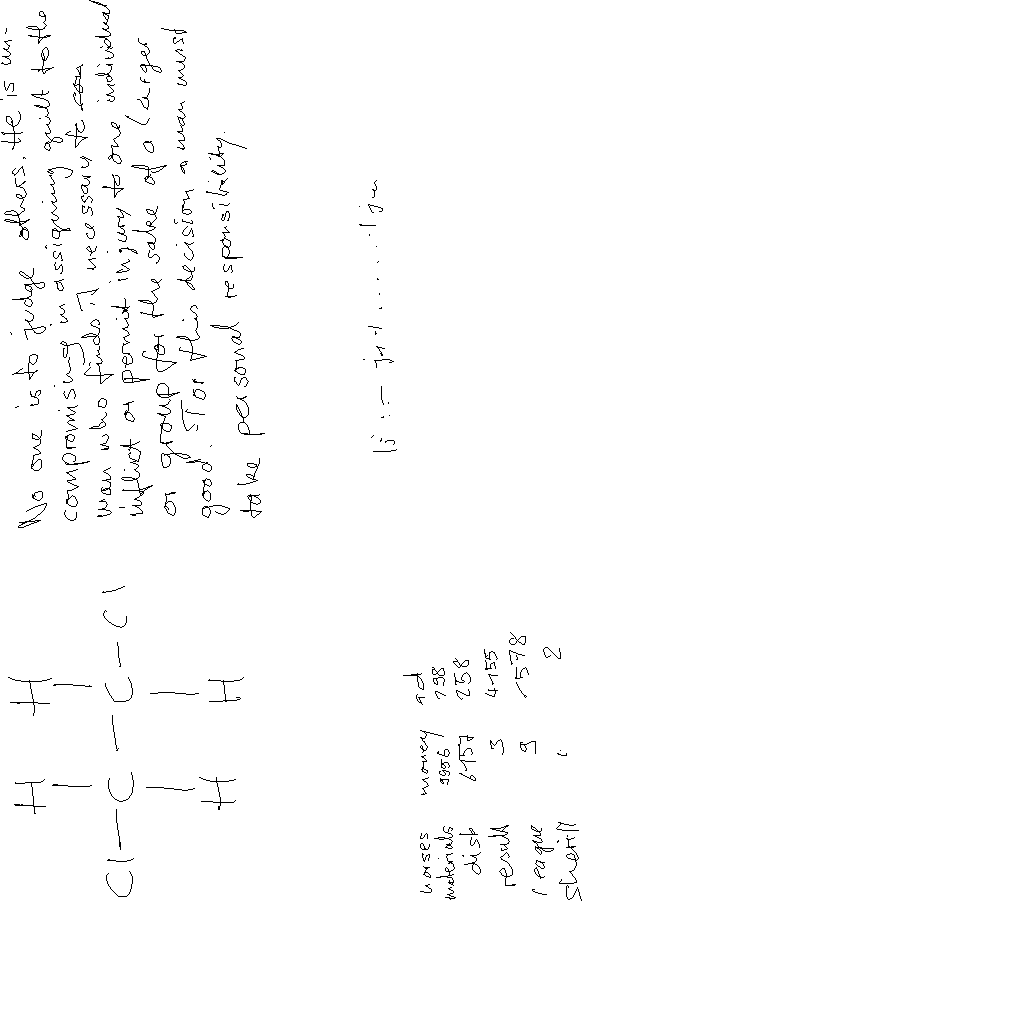 H H
Cl - C - C - Cl
H H
No one is to judge others. He is un-
compromising in assigning guilt to the
man who finds it necessary to
inflict or permit injury to one individual
or group for the sake of a larger
good. For this decision a man must
take personal responsibility.
horses money
materials 9956 198
6457 258
result 3 4155
league 9 578
sheriff 2